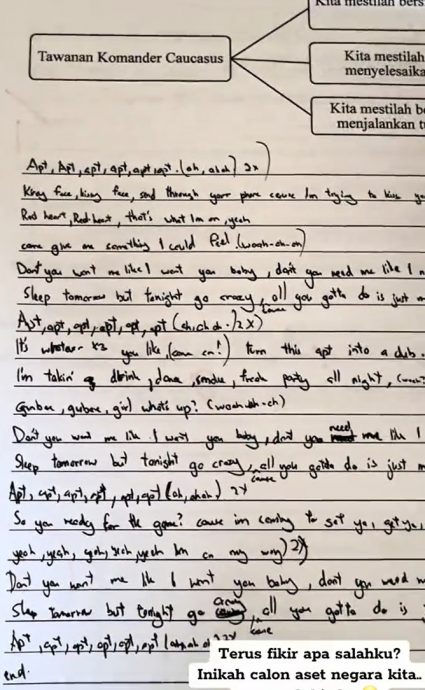 Kita mestilah bers
Tawanan Komander Caucasus
Kita mestilah
menyelesaika
Kita mestilah be
menjalankan tu
Apt, Apt, apt, apt, apt, apt. (ah, ahah) 2x
Kissy face, kissy face, send through your phone cause Im trying to kiss yo
Red heart, Red heart, that's what Im on, yeah
come give me something I could Feel (woah-oh-oh)
Don't you want me like I want you baby, don't you need me like I n
Sleep tomorrow but tonight go crazy, cause all you gotta do is just m
Apt, apt, apt, apt, apt, apt (ah, ah ah.) 2x)
It's whatever x3 you like, (come on!) turn this apt into a club.
I'm talkin' drink, dance, smoke, freak party all night, (
Gunbae, gubae, girl whats up? (woah-oh-oh)
Don't you want me like I want you baby, don't you need me like I
Sleep tomorrow but tonight go crazy, cause all you gotta do is just m
Apt, apt, apt, apt, apt, apt (ah, ahah) 2x
So you ready for the game? cause im coming to get ya, get ya,
yeah, yeah, yeah, yeah, yeah Im on my way) 2x
Don't you want me like I want you baby, don't you need m
Sleep tomorrow but tonight go crazy, cause all you gotta do is j
Apt, apt, apt, apt, apt, apt (ah 2x
end.
Terus fikir apa salahku?
Inikah calon aset negara kita..